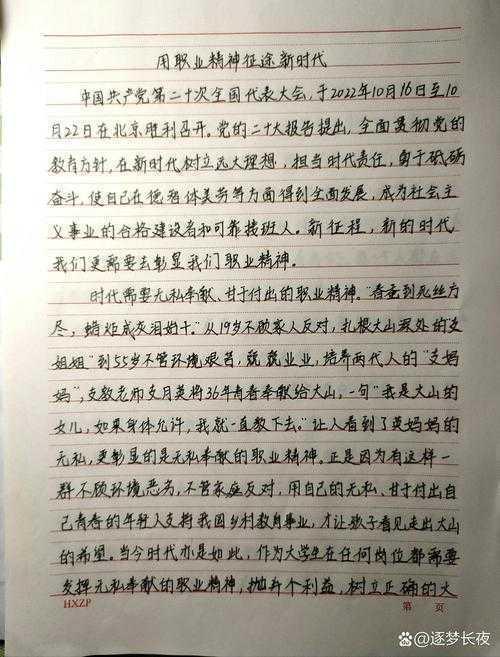 用职业精神征途新时代
中国共产党第二十次全国代表大会,于2022年10月16日至10
月22日在北京胜利召开。党的二十大报告提出,全面贯彻党的
教育方针,在新时代树立远大理想,担当时代责任,勇于砥砺
奋斗,使自己在德智体美劳等方面得到全面发展,成为社会主
义事业的合格建设者和可靠接班人。新征程,新的时代
我们更需要去彰显我们职业精神。
时代需要无私奉献、甘于付出的职业精神。“春蚕到死丝方
尽,蜡炬成灰泪始干。”从19岁不顾家人反对,扎根大山深处的“支
姐姐”到55岁不管环境艰苦,兢兢业业,培养两代人的“支妈
妈”,支教老师支月英将36年青春奉献给大山,一句“我是大山的
女儿,如果身体允许,我就一直教下去。”让人看到了英妈妈的
无私,更彰显的是无私奉献的职业精神。正是因为有这样一
群不顾环境恶劣,不管家庭反对,用自己的无私、甘于付出自
己青春的年轻人支持我国乡村教育事业,才让孩子看见走出大山
的希望。当今时代亦是如此,作为大学生在任何岗位都需要
发挥无私奉献的职业精神,抛弃个利益,树立正确的大
HXZP 第 页
逐梦长夜